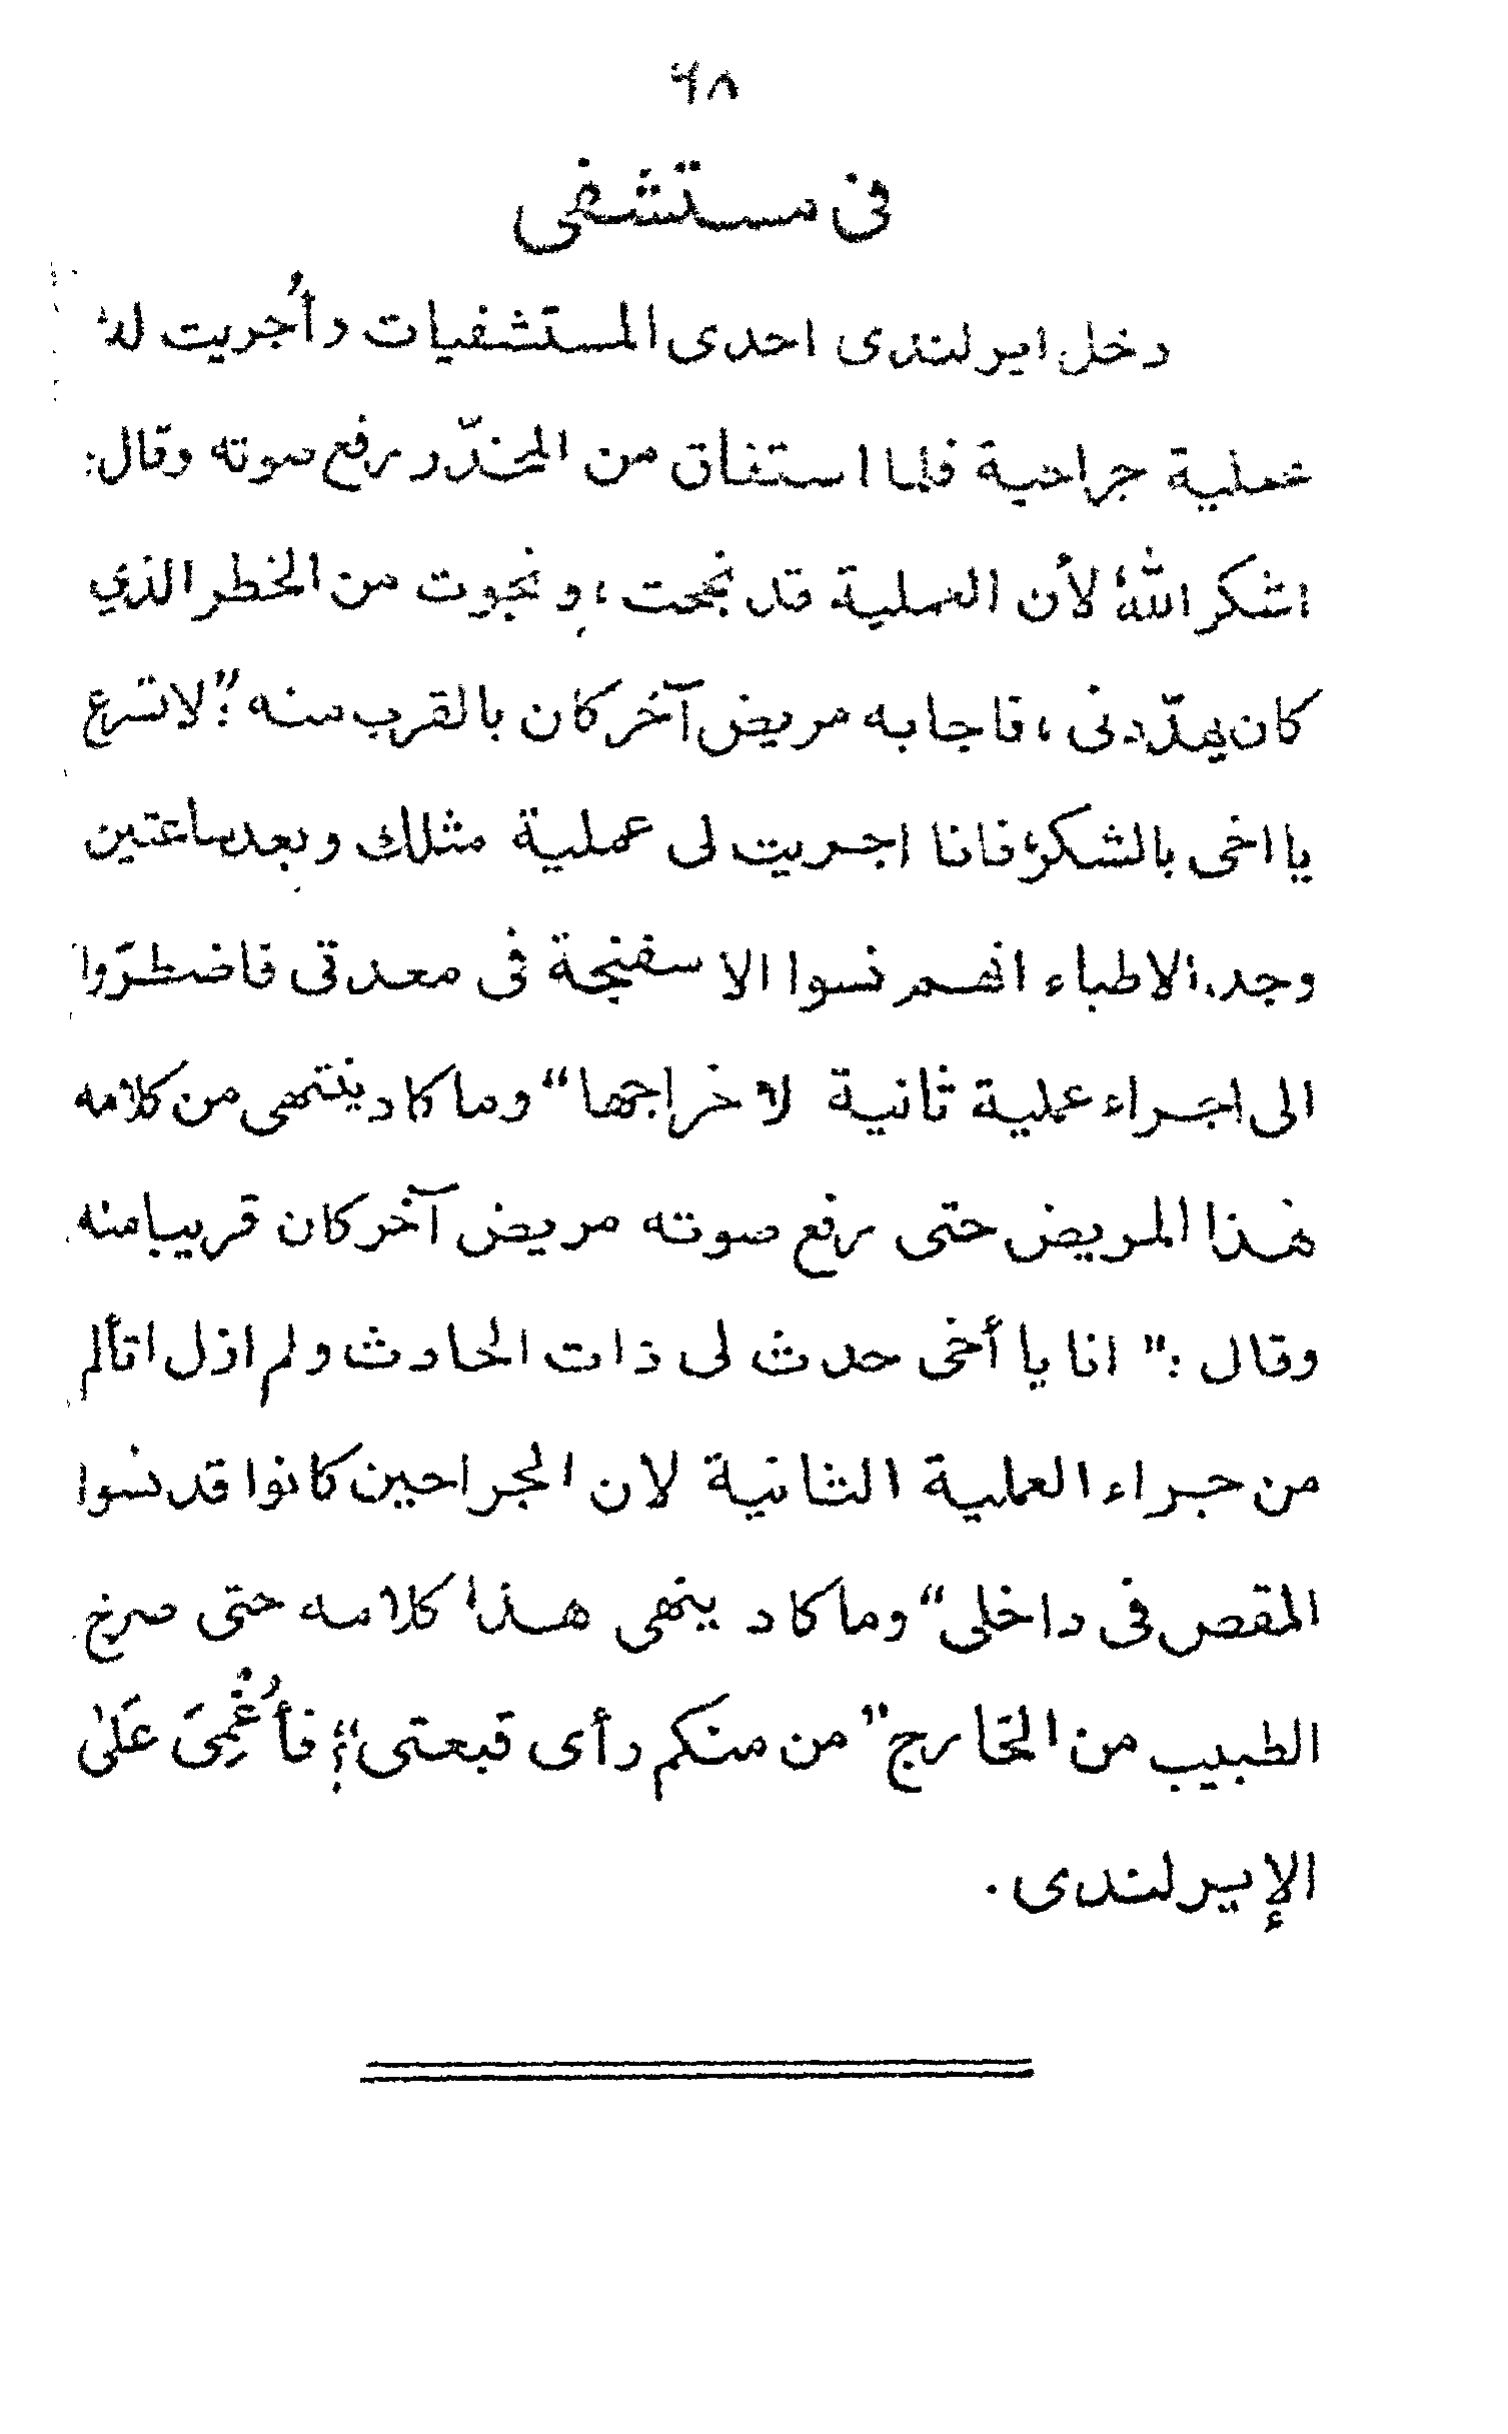 ٦٨
فى مستشفى
دخل ايرلندى احدى المستشفيات وأُجريت له
عملية جراحية فلما استفاق من المخدّر رفع صوته وقال:
اشكر اللهَ لأن العملية قد نجحت ، ونجوت من الخطر الذي
كان يهدّدنى ، فاجابه مريض آخر كان بالقرب منه :" لا تسرع
يا اخى بالشكر، فانا اجريت لى عملية مثلك وبعد ساعتين
وجد الاطباء انهم نسوا الاسفنجة فى معدتى فاضطرّوا
الى اجراء عملية ثانية لاخراجها" وما كاد ينتهى من كلامه
هذا المريض حتى رفع صوته مريض آخر كان قريبا منه
وقال :" انا يا أخى حدث لى ذات الحادث ولم ازل اتألم
من جراء العملية الثانية لان الجراحين كانوا قد نسوا
المقص فى داخلى" وما كاد ينهى هذا كلامه حتى صرخ
الطبيب من الخارج "من منكم رأى قبعتى"؟ فأُغْمِىَ عَلىٰ
الإيرلندى .